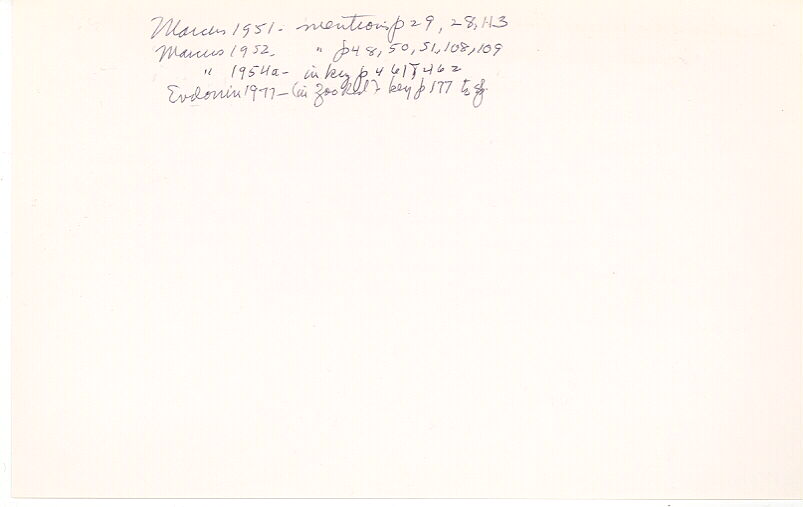 Marcus 1951 - mention p 29, 28, 113
Marcus 1952 - " p 48, 50, 51, 108, 109
" 1954a - in key p 461 + 462
Evdonin 1977 - (in key p 177 to sf